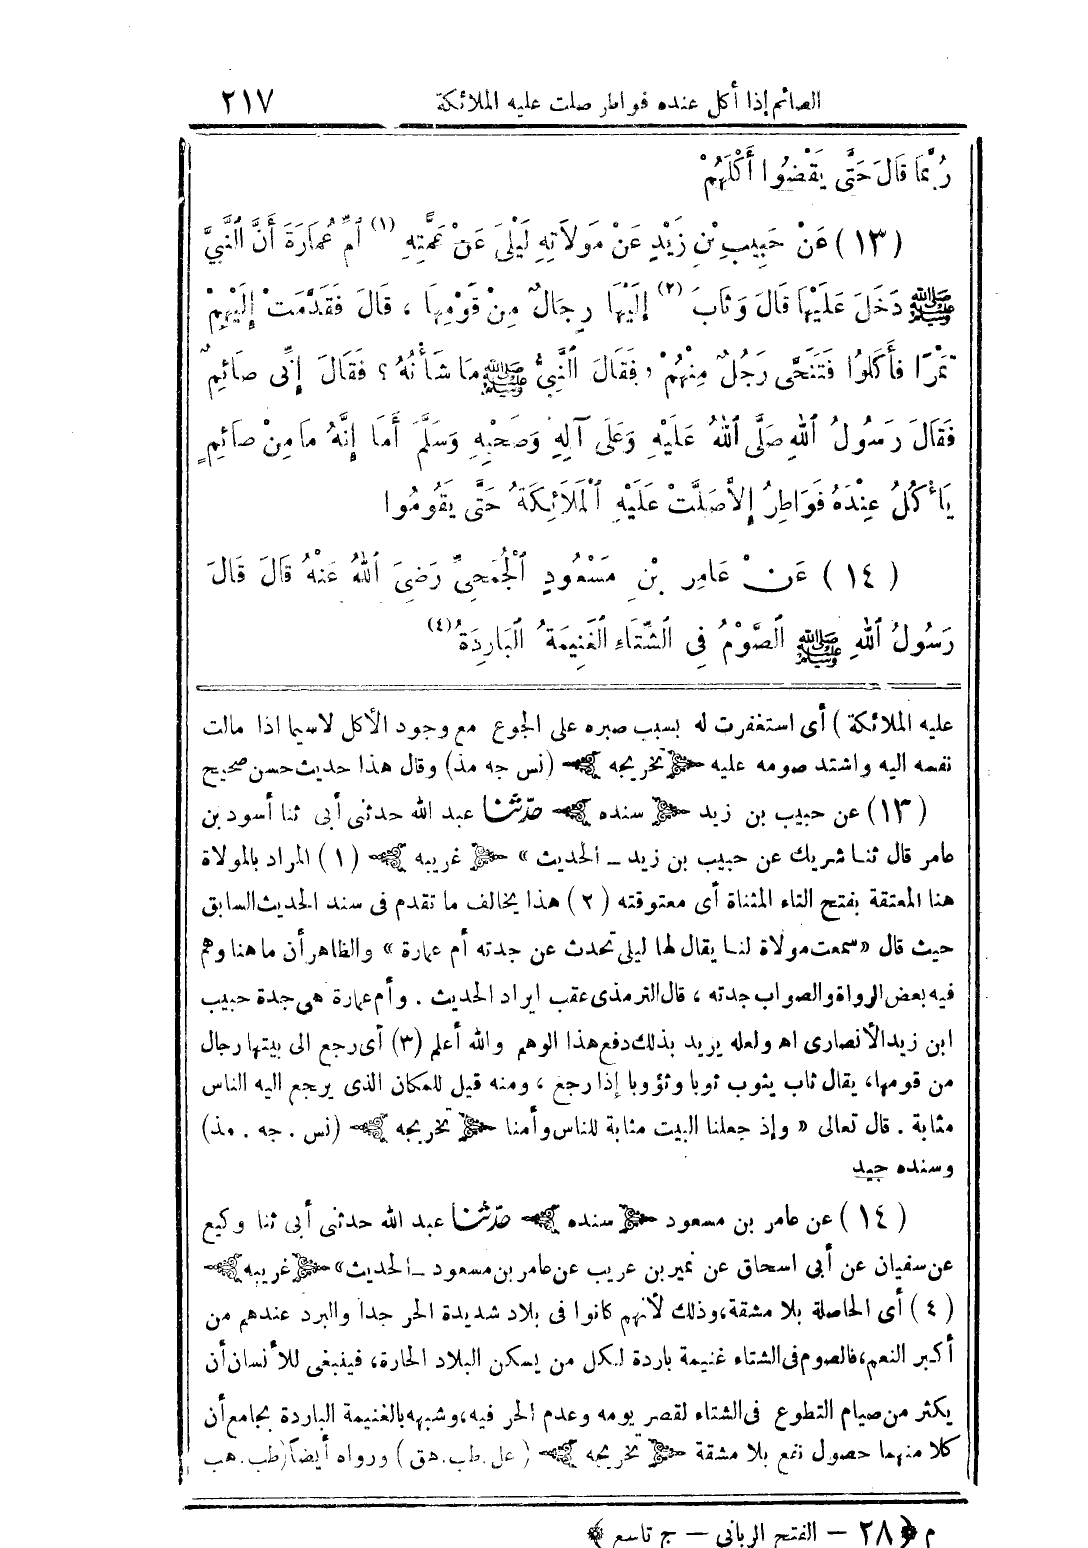 الصائم إذا أكل عنده فواطر صلت عليه الملائكة ٢١٧
رُبَّمَا قَالَ حَتَّى يَقْضُوا أَكْلَهُمْ
(١٣) عَنْ حَبِيبِ بْنِ زَيْدٍ عَنْ مَوْلَاتِهِ لَيْلَى عَنْ عَمَّتِهِ (١) أُمِّ عُمَارَةَ أَنَّ النَّبِيَّ
ﷺ دَخَلَ عَلَيْهَا قَالَ وَثَابَ (٢) إِلَيْهَا رِجَالٌ مِنْ قَوْمِهَا ، قَالَ فَقَدَّمَتْ إِلَيْهِمْ
تَمْرًا فَأَكَلُوا فَتَنَحَّى رَجُلٌ مِنْهُمْ ، فَقَالَ النَّبِيُّ ﷺ مَا شَأْنُهُ ؟ فَقَالَ إِنِّى صَائِمٌ
فَقَالَ رَسُولُ اللهِ صَلَّى اللهُ عَلَيْهِ وَعَلَى آلِهِ وَصَحْبِهِ وَسَلَّمَ أَمَا إِنَّهُ مَا مِنْ صَائِمٍ
يَأْكُلُ عِنْدَهُ فَوَاطِرُ إِلاَّ صَلَّتْ عَلَيْهِ الْمَلَائِكَةُ حَتَّى يَقُومُوا
(١٤) عَنْ عَامِرِ بْنِ مَسْعُودٍ الْجُمَحِىِّ رَضِىَ اللهُ عَنْهُ قَالَ قَالَ
رَسُولُ اللهِ ﷺ الصَّوْمُ فِى الشِّتَاءِ الْغَنِيمَةُ الْبَارِدَةُ (٤)
عليه الملائكة ) أى استغفرت له بسبب صبره على الجوع مع وجود الأكل لاسيما اذا مالت
نفسه اليه واشتد صومه عليه تخريجه (نس جه مذ) وقال هذا حديث حسن صحيح
(١٣) عن حبيب بن زيد سنده حدثنا عبد الله حدثنى أبى ثنا أسود بن
عامر قال ثنا شريك عن حبيب بن زيد ـ الحديث » غريبه (١) المراد بالمولاة
هنا المعتقة بفتح التاء المثناة أى معتوقته (٢) هذا يخالف ما تقدم فى سند الحديث السابق
حيث قال «سمعت مولاة لنا يقال لها ليلى تحدث عن جدته أم عمارة » والظاهر أن ما هنا وهم
فيه بعض الرواة والصواب جدته ، قال الترمذى عقب ايراد الحديث . وأم عمارة هى جدة حبيب
ابن زيد الأنصارى اه ولعله يريد بذلك دفع هذا الوهم والله أعلم (٣) أى رجع الى بيتها رجال
من قومها، يقال ثاب يثوب ثوبا وثؤوبا إذا رجع ، ومنه قيل للمكان الذى يرجع اليه الناس
مثابة . قال تعالى « وإذ جعلنا البيت مثابة للناس وأمنا تخريجه (نس . جه . مذ)
وسنده جيد
(١٤) عن عامر بن مسعود سنده حدثنا عبد الله حدثنى أبى ثنا وكيع
عن سفيان عن أبى اسحاق عن نمير بن عريب عن عامر بن مسعود ـ الحديث» غريبه
(٤) أى الحاصلة بلا مشقة، وذلك لأنهم كانوا فى بلاد شديدة الحر جدا والبرد عندهم من
أكبر النعم، فالصوم فى الشتاء غنيمة باردة لكل من يسكن البلاد الحارة، فينبغى للأنسان أن
يكثر من صيام التطوع فى الشتاء لقصر يومه وعدم الحر فيه، وشبهه بالغنيمة الباردة بجامع أن
كلا منهما حصول نفع بلا مشقة تخريجه (عل . طب . هق) ورواه أيضاً (طب . هب
م ﴿٢٨ – الفتح الربانى – ج تاسع ﴾